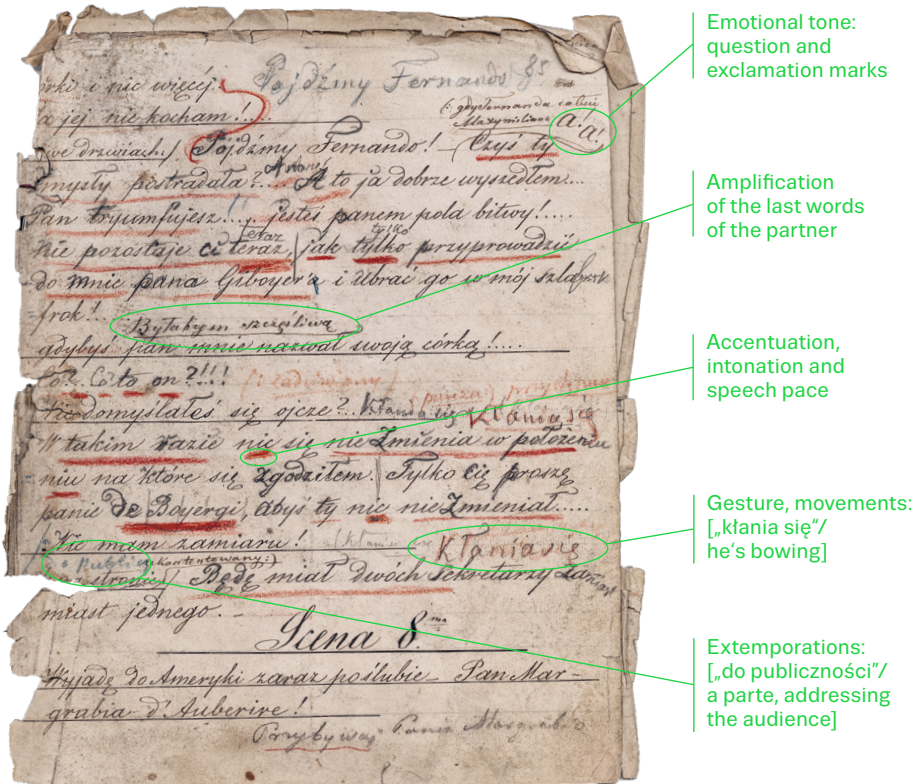 Pójdźmy Fernando! 85
órki i nic więcéj.
a jej nie kocham!...
(: gdy Fernanda całuje
Maxymiliana
a! a!
we drzwiach) Pójdźmy Fernando! — Czyś ty
zmysły postradała?... A to ja dobrze wyszedłem...
Pan tryumfujesz!... jesteś panem pola bitwy!....
teraz tylko
nie pozostaje ci teraz, jak tylko przyprowadzić
do mnie pana Giboyer'a i ubrać go w mój szlafrok
frok!
Byłabym szczęśliwą
gdybyś pan mnie nazwał swoją córką!....
Co? Co to on?!!! (: zadziwiony)
(pauza)
Nie domyślałeś się ojcze? Kłania się Kłania się
W takim razie nic się nie zmienia w położeniu
niu na które się zgodziłem. Tylko cię proszę
panie de Boyergi, abyś ty nic nie zmieniał.....
Nie mam zamiaru! Kłania się
do publicz kontentowany:)
na stronie) Będę miał dwóch Sekretarzy zamiast
miast jednego. —
Scena 8 ma
Wyjadę do Ameryki zaraz poślubie — Pan Mar-
grabia d'Auberive!
Przybywasz Panie Margrabio
Emotional tone:
question and
exclamation marks
Amplification
of the last words
of the partner
Accentuation,
intonation and
speech pace
Gesture, movements:
[„kłania się“/
he's bowing]
Extemporations:
[„do publiczności”/
a parte, addressing
the audience]